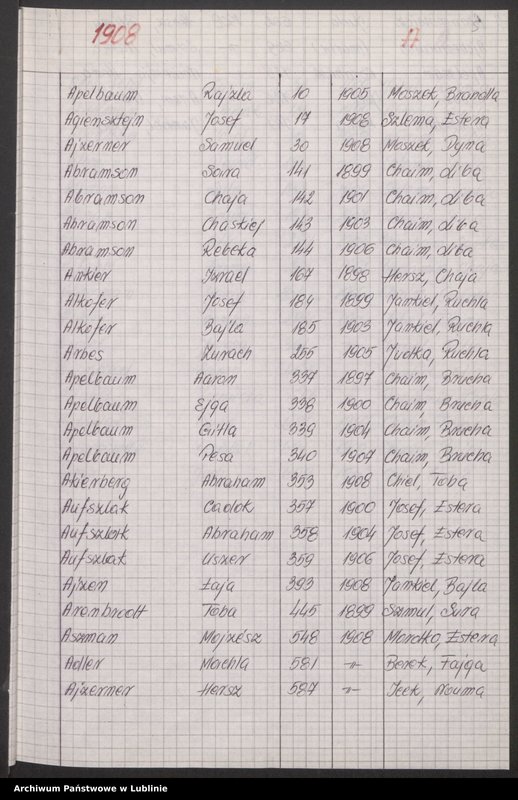 1908 A
Apelbaum Rajzla 10 1905 Moszek, Brandla
Agiensztejn Josef 17 1908 Szlema, Estera
Ajzerner Samuel 30 1908 Moszek, Dyna
Abramson Sora 141 1899 Chaim, Liba
Abramson Chaja 142 1901 Chaim, Liba
Abramson Chaskiel 143 1903 Chaim, Liba
Abramson Rebeka 144 1906 Chaim, Liba
Ankier Izrael 167 1898 Hersz, Chaja
Alkofer Josef 184 1899 Jankiel, Ruchla
Alkofer Bajla 185 1903 Jankiel, Ruchla
Arbes Zurach 255 1905 Judka, Ruchla
Apelbaum Aaron 337 1897 Chaim, Brucha
Apelbaum Ejga 338 1900 Chaim, Brucha
Apelbaum Gitla 339 1904 Chaim, Brucha
Apelbaum Pesa 340 1907 Chaim, Brucha
Akierberg Abraham 353 1908 Chiel, Toba
Aufszlak Cadok 357 1900 Josef, Estera
Aufszlak Abraham 358 1904 Josef, Estera
Aufszlak Uszer 359 1906 Josef, Estera
Ajzen Łaja 393 1908 Jankiel, Bajla
Arenbrodt Toba 445 1899 Szmul, Sura
Aszman Mojżesz 548 1908 Mordko, Estera
Adler Machla 581 -"- Berek, Fajga
Ajzerner Hersz 587 -"- Icek, Nouma
Archiwum Państwowe w Lublinie